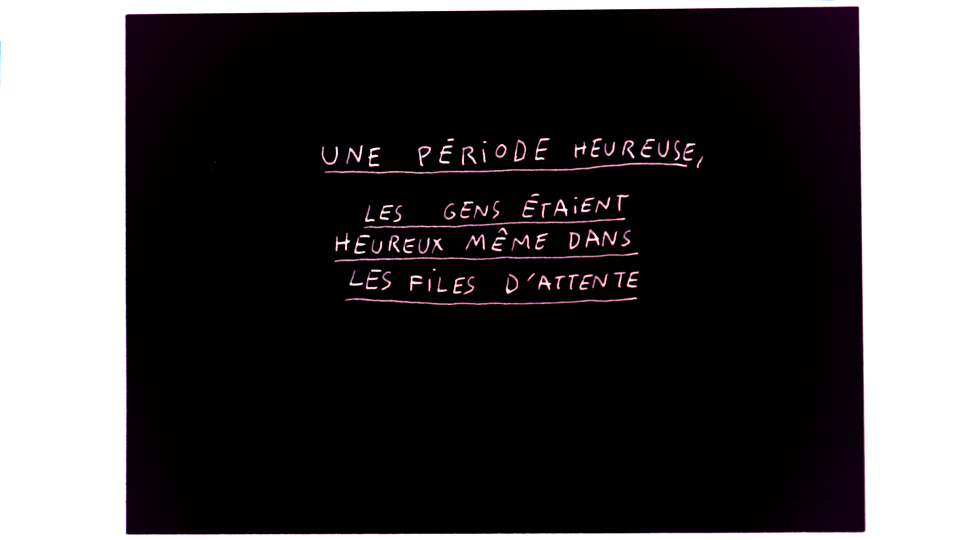 UNE PÉRIODE HEUREUSE,
LES GENS ÉTAIENT
HEUREUX MÊME DANS
LES FILES D'ATTENTE